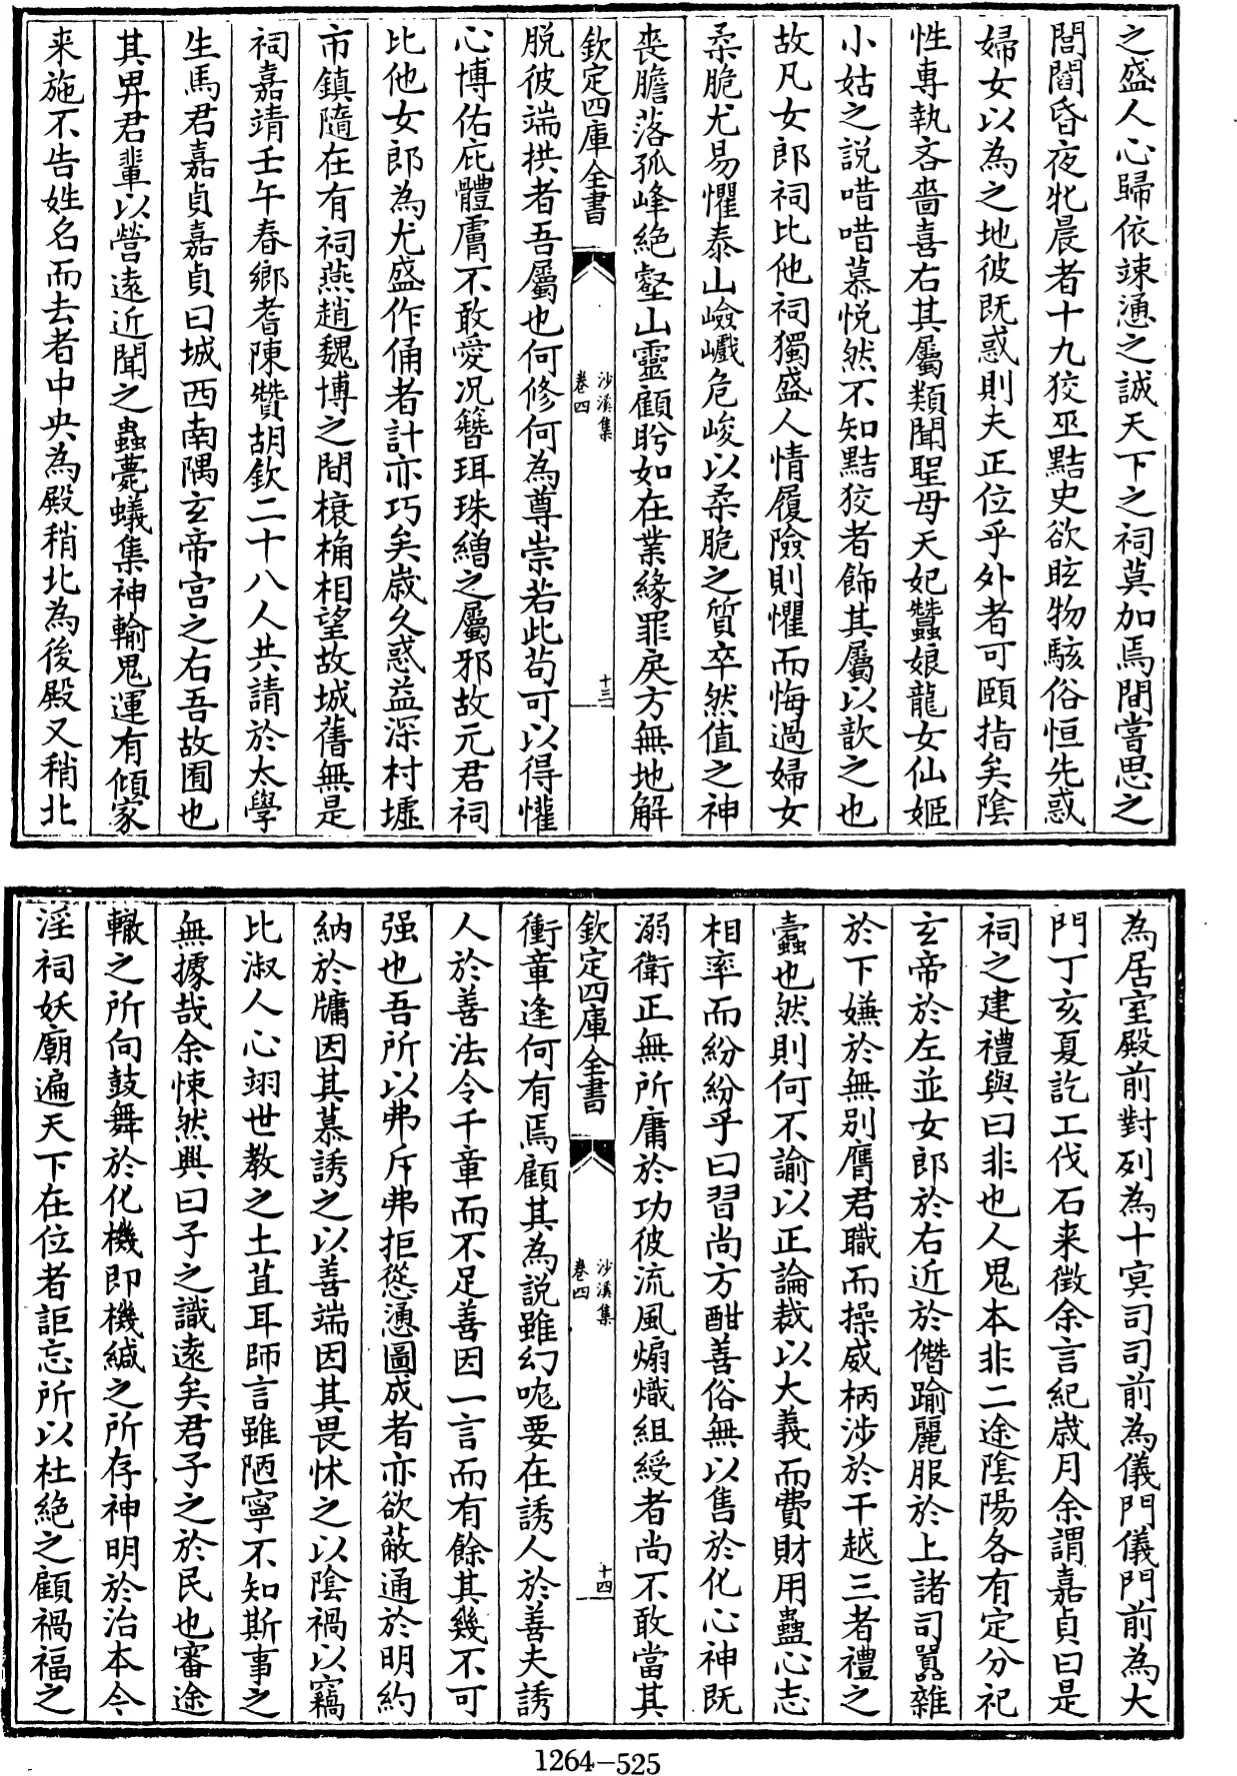 之盛人心歸依竦慂之誠天下之祠莫加焉間嘗思之
閭閻昏夜牝晨者十九狡巫黠史欲眩物駭俗恒先惑
婦女以為之地彼既惑則夫正位乎外者可頤指矣陰
性專執吝嗇喜右其屬類聞聖母天妃蠶娘龍女仙姬
小姑之説唶唶慕悦然不知黠狡者飾其屬以歆之也
故凡女郎祠比他祠獨盛人情履險則懼而悔過婦女
柔脆尤易懼泰山嶮巇危峻以柔脆之質卒然值之神
喪膽落孤峰絶壑山靈顧盻如在業緣罪戾方無地解
欽定四庫全書
沙溪集
卷四
十三
脱彼端拱者吾屬也何修何為尊崇若此苟可以得懽
心博佑庇體膚不敢愛况簪珥珠繒之屬邪故元君祠
比他女郎為尤盛作俑者計亦巧矣歳久惑益深村墟
市鎮隨在有祠燕趙魏博之間榱桷相望故城舊無是
祠嘉靖壬午春鄉耆陳贊胡欽二十八人共請於太學
生馬君嘉貞嘉貞曰城西南隅玄帝宫之右吾故囿也
其畀君輩以營遠近聞之蟲薨蟻集神輸鬼運有傾家
来施不告姓名而去者中央為殿稍北為後殿又稍北
為居室殿前對列為十㝠司司前為儀門儀門前為大
門丁亥夏訖工伐石来徵余言紀歳月余謂嘉貞曰是
祠之建禮與曰非也人鬼本非二途陰陽各有定分祀
玄帝於左並女郎於右近於僭踰麗服於上諸司嚚雜
於下嫌於無别膺君職而操威柄涉於干越三者禮之
蠹也然則何不諭以正論裁以大義而費財用蠱心志
相率而紛紛乎曰習尚方酣善俗無以售於化心神既
溺衛正無所庸於功彼流風煽熾組綬者尚不敢當其
欽定四庫全書
沙溪集
卷四
十四
衝章逢何有焉顧其為説雖幻唬要在誘人於善夫誘
人於善法令千章而不足善因一言而有餘其幾不可
强也吾所以弗斥弗拒慫慂圖成者亦欲蔽通於明約
納於牖因其慕誘之以善端因其畏怵之以陰禍以竊
比淑人心翊世教之土苴耳師言雖陋寧不知斯事之
無據哉余悚然興曰子之識遠矣君子之於民也審途
轍之所向鼓舞於化機即機緘之所存神明於治本今
淫祠妖廟遍天下在位者詎忘所以杜絶之顧禍福之
1264-525